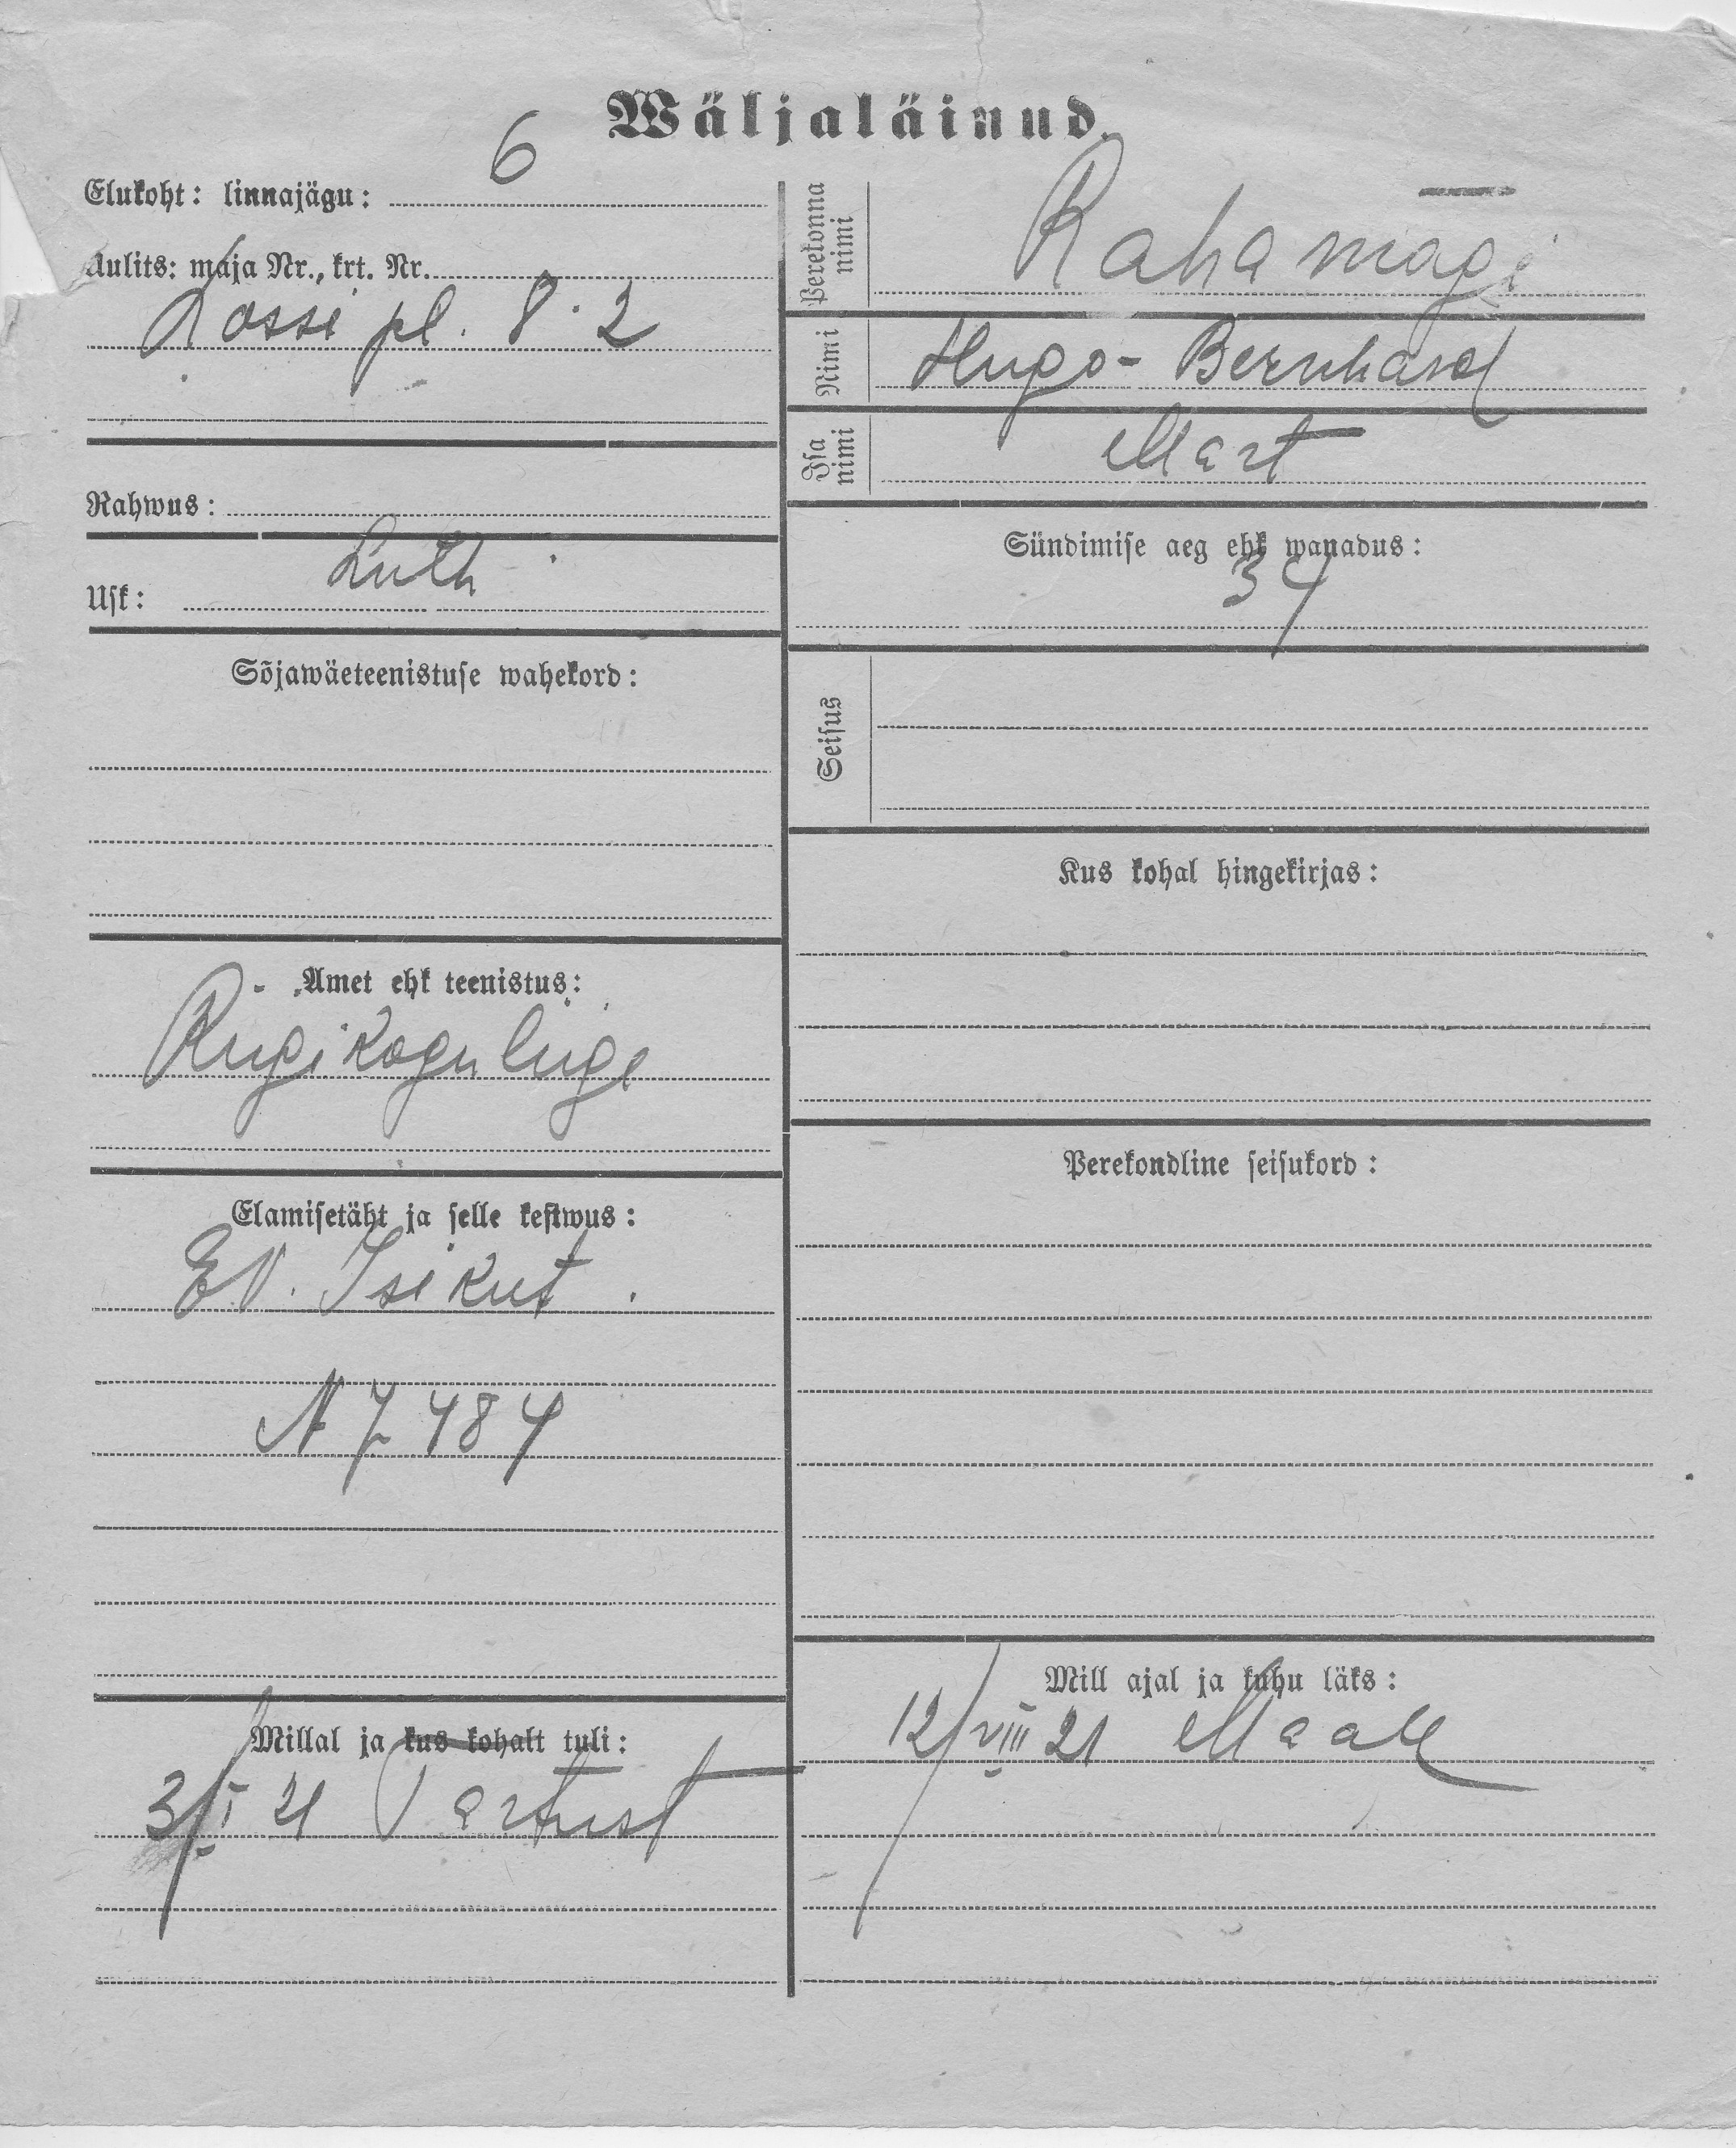 Wäljaläinud.
Elukoht: linnajägu: 6
Aulits: maja Nr., krt. Nr.
Lossi pl. 8. 2
Rahwus:
Usk: Luth.
Sõjawäeteenistuse wahekord:
Amet ehk teenistus:
Riigikogu liige
Elamisetäht ja selle kestwus:
EV. Isikut.
N 7484
Millal ja kus kohalt tuli:
3/I 21 Tartust
Perekonna nimi
Rahamägi
Nimi
Hugo-Bernhard
Isa nimi
Mart
Sündimise aeg ehk wanadus:
34
Seisus
Kus kohal hingekirjas:
Perekondline seisukord:
Mill ajal ja kuhu läks:
12/VIII 21 Maale